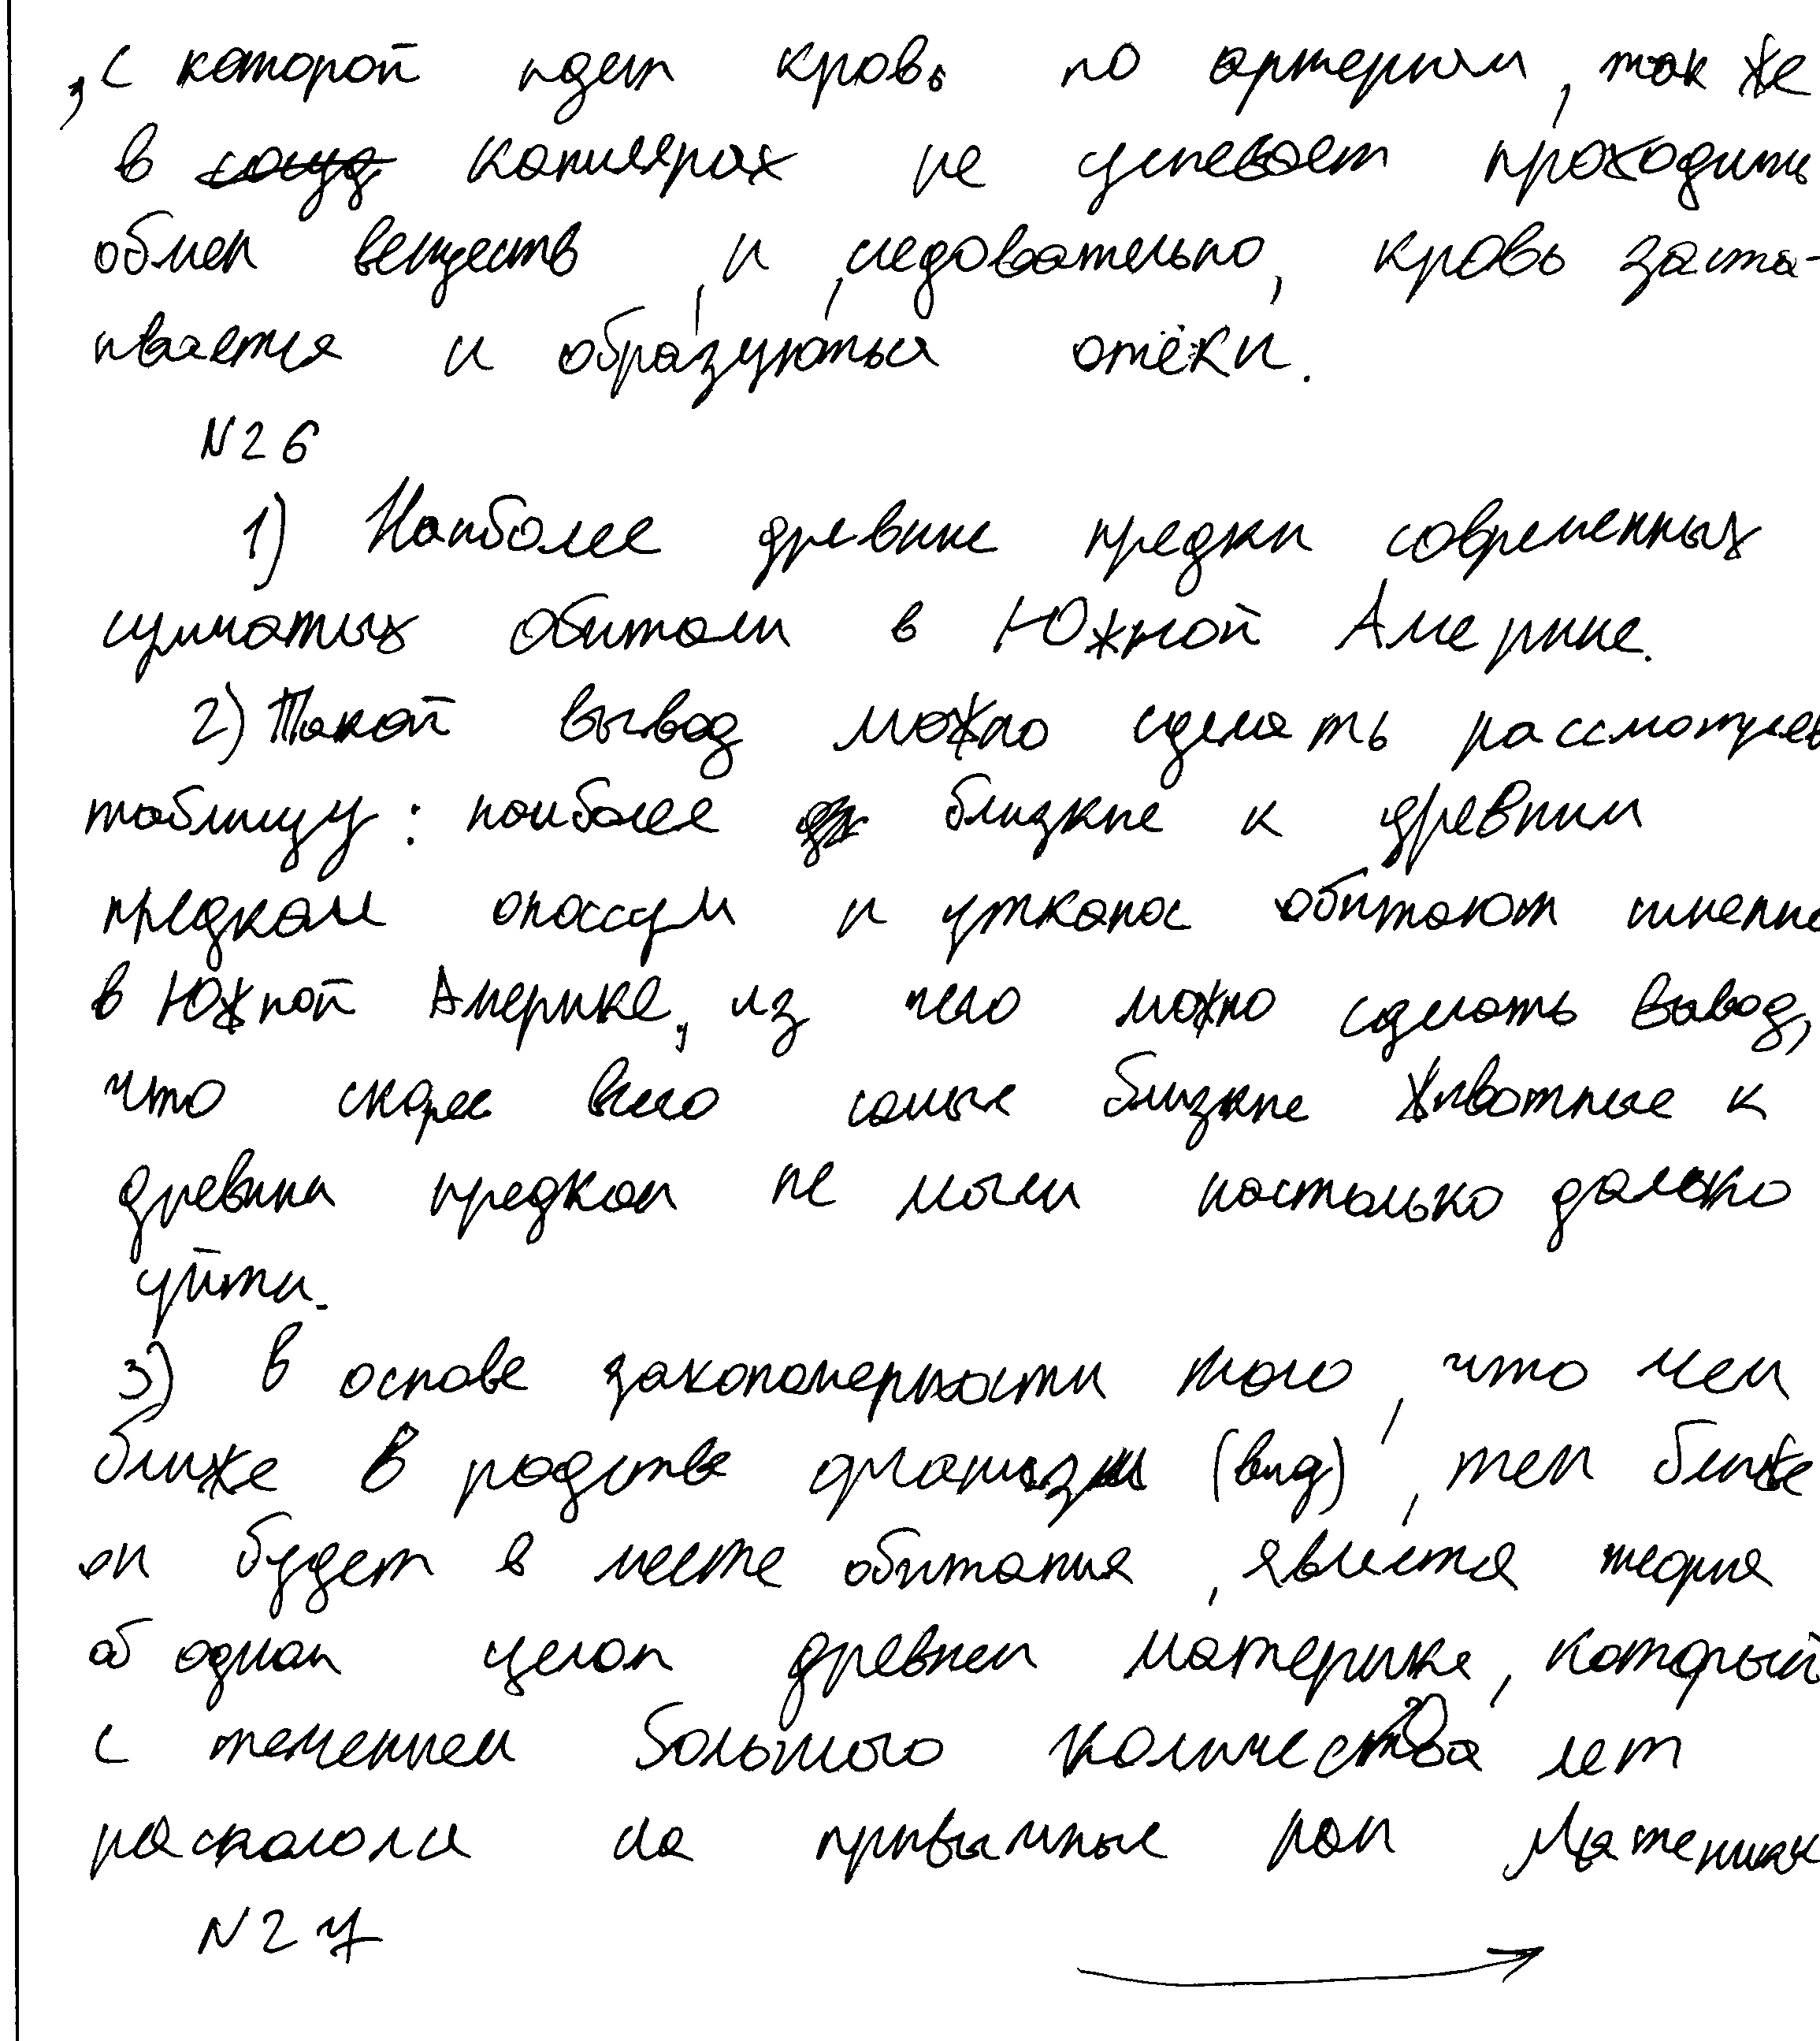 , с которой идет кровь по артериям, так же
в сосуд капилярах не успевает проходить
обмен веществ, и, следовательно, кровь заста-
ивается и образуються отёки.
N26
1) Наиболее древние предки современных
сумчатых обитали в Южной Америке.
2) Такой вывод можно сделать рассмотрев
таблицу: наиболее близкие к древним
предкам опоссум и утканос обитают именно
в Южной Америке, из чего можно сделать вывод,
что скорее всего самые близкие животные к
древним предкам не могли настолько далеко
уйти.
3) В основе закономерности того, что чем
ближе в родстве организм (вид), тем ближе
он будет в месте обитания, является теория
об одном целом древнем материке, который
с течением большого количества лет
раскололся на привычные нам материки
N27